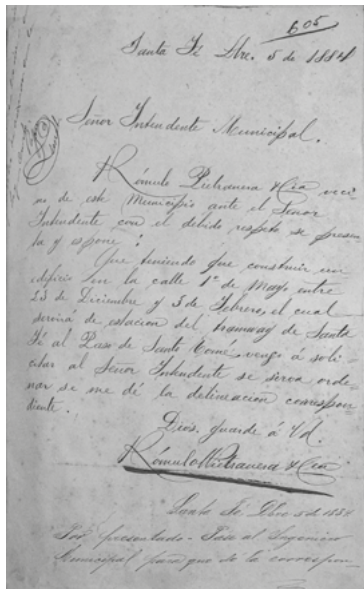 605
Santa Fé Dbre. 5 de 1884
Señor Intendente Municipal.
Rómulo Pietranera & Cia veci
no de este Municipio ante el Señor
Intendente con el debido respeto se presen
ta y espone:
Que teniendo que construir un
edificio en la calle 1º de Mayo entre
23 de Diciembre y 3 de Febrero, el cual
servirá de estacion del tramway de Santa
Fé al Paso de Santo Tomé, vengo á soli
citar al Señor Intendente se sirva orde
nar se me dé la delineacion correspon
diente.
Dios guarde á Vd.
Rómulo Pietranera & Cia
Santa Fé Dbre 5 de 1884
Por presentado - Pase al Ingeniero
Municipal para que dé la correspon